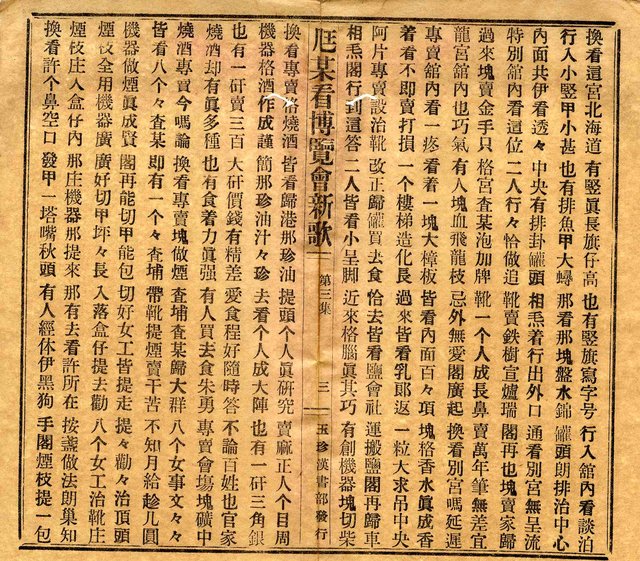 換看這宮北海道 有竪眞長旗仔高 也有竪旗寫字号 行入舘內看談泊
行入小竪甲小甚 也有排魚甲大蟳 那看那塊盤水錦 罐頭朗排治中心
內面共伊看透々 中央有排卦罐頭 相毛着行出外口 通看別宮無呈流
特別舘內看這位 二人行々恰做迫 靴賣鉄樹宣爐瑞 閣再也塊賣家歸
過來塊賣金手只 格宮查某泡加牌 靴一个人成長鼻 賣萬年筆無差宜
龍宮舘內也巧氣 有人塊血飛龍枝 忌外無愛閣廣起 換看別宮嗎延遲
專賣舘內看一疼 看着一塊大樟板 皆看內面百々項 塊格香水眞成香
着看不即賣打損 一個樓梯造化長 過來皆看乳郎返 一粒大求吊中央
阿片專賣設治靴 改正歸罐買去食 恰去皆看鹽會社 運搬鹽閣再歸車
相毛閣行到這答 二人皆看小呈脚 近來格腦眞其巧 有創機器塊切柴
厩某看博覽會新歌 第三集 三 玉珍漢書部發行
換看專賣格燒酒 皆看歸港那珍油 提頭个人眞研究 賣麻正人个目周
機器格酒作成謹 簡那珍油汁々珍 去看个人成大陣 也有一矸三角銀
也有一矸賣三百 大矸價錢有精差 愛食程好隨時答 不論百姓也官家
燒酒却有眞多種 也有食着力眞强 有人買去食朱勇 專賣會塲塊礦中
燒酒專賣今嗎論 換看專賣塊做煙 查埔查某歸大群 八个女事文々々
皆看八个々查某 即有一个々查埔 帶靴提煙賣干苦 不知月給趁几圓
機器做煙眞成賢 閣再能切甲能包 切好女工皆提走 提々勸々治頂頭
煙枝全用機器廣 廣好切甲坪々長 入落盒仔提去勸 八个女工治靴庄
煙枝庄入盒仔內 那庄機器那提來 那有去看許所在 按盞做法朗巢知
換看許个鼻空口 發甲一塔嘴秋頭 有人經休伊黑狗 手閣煙枝提一包